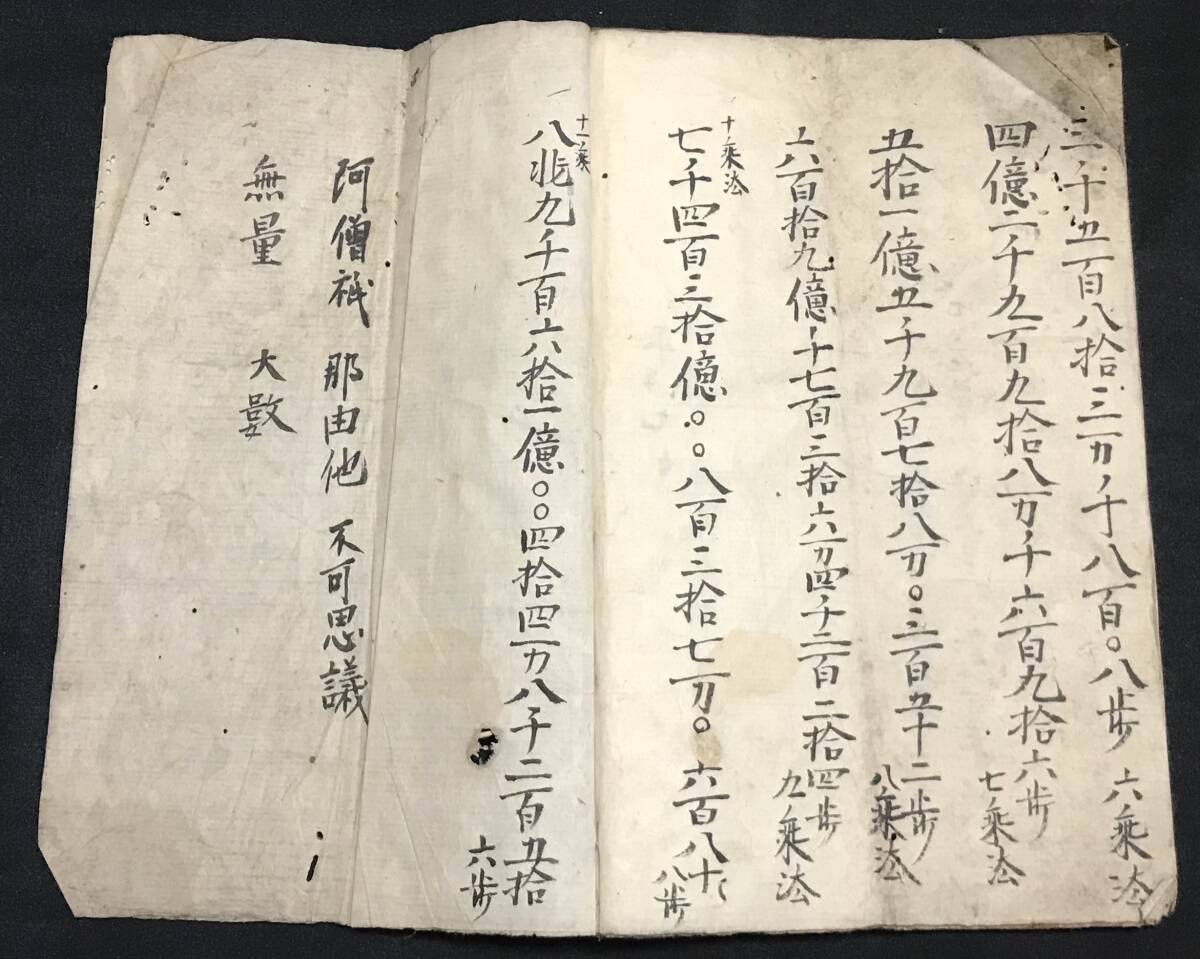 三千五百八拾三万千八百〇八歩 六乗法
四億二千九百九拾八万千六百九拾六歩 七乗法
五拾一億五千九百七拾八万〇三百五十二歩 八乗法
六百拾九億千七百三拾六万四千二百二拾四歩 九乗法
十乗法
七千四百三拾億〇〇八百三拾七万〇六百八十八歩
十一乗
八兆九千百六拾一億〇〇四拾四万八千二百五拾六歩
阿僧祇 那由他 不可思議
無量 大数